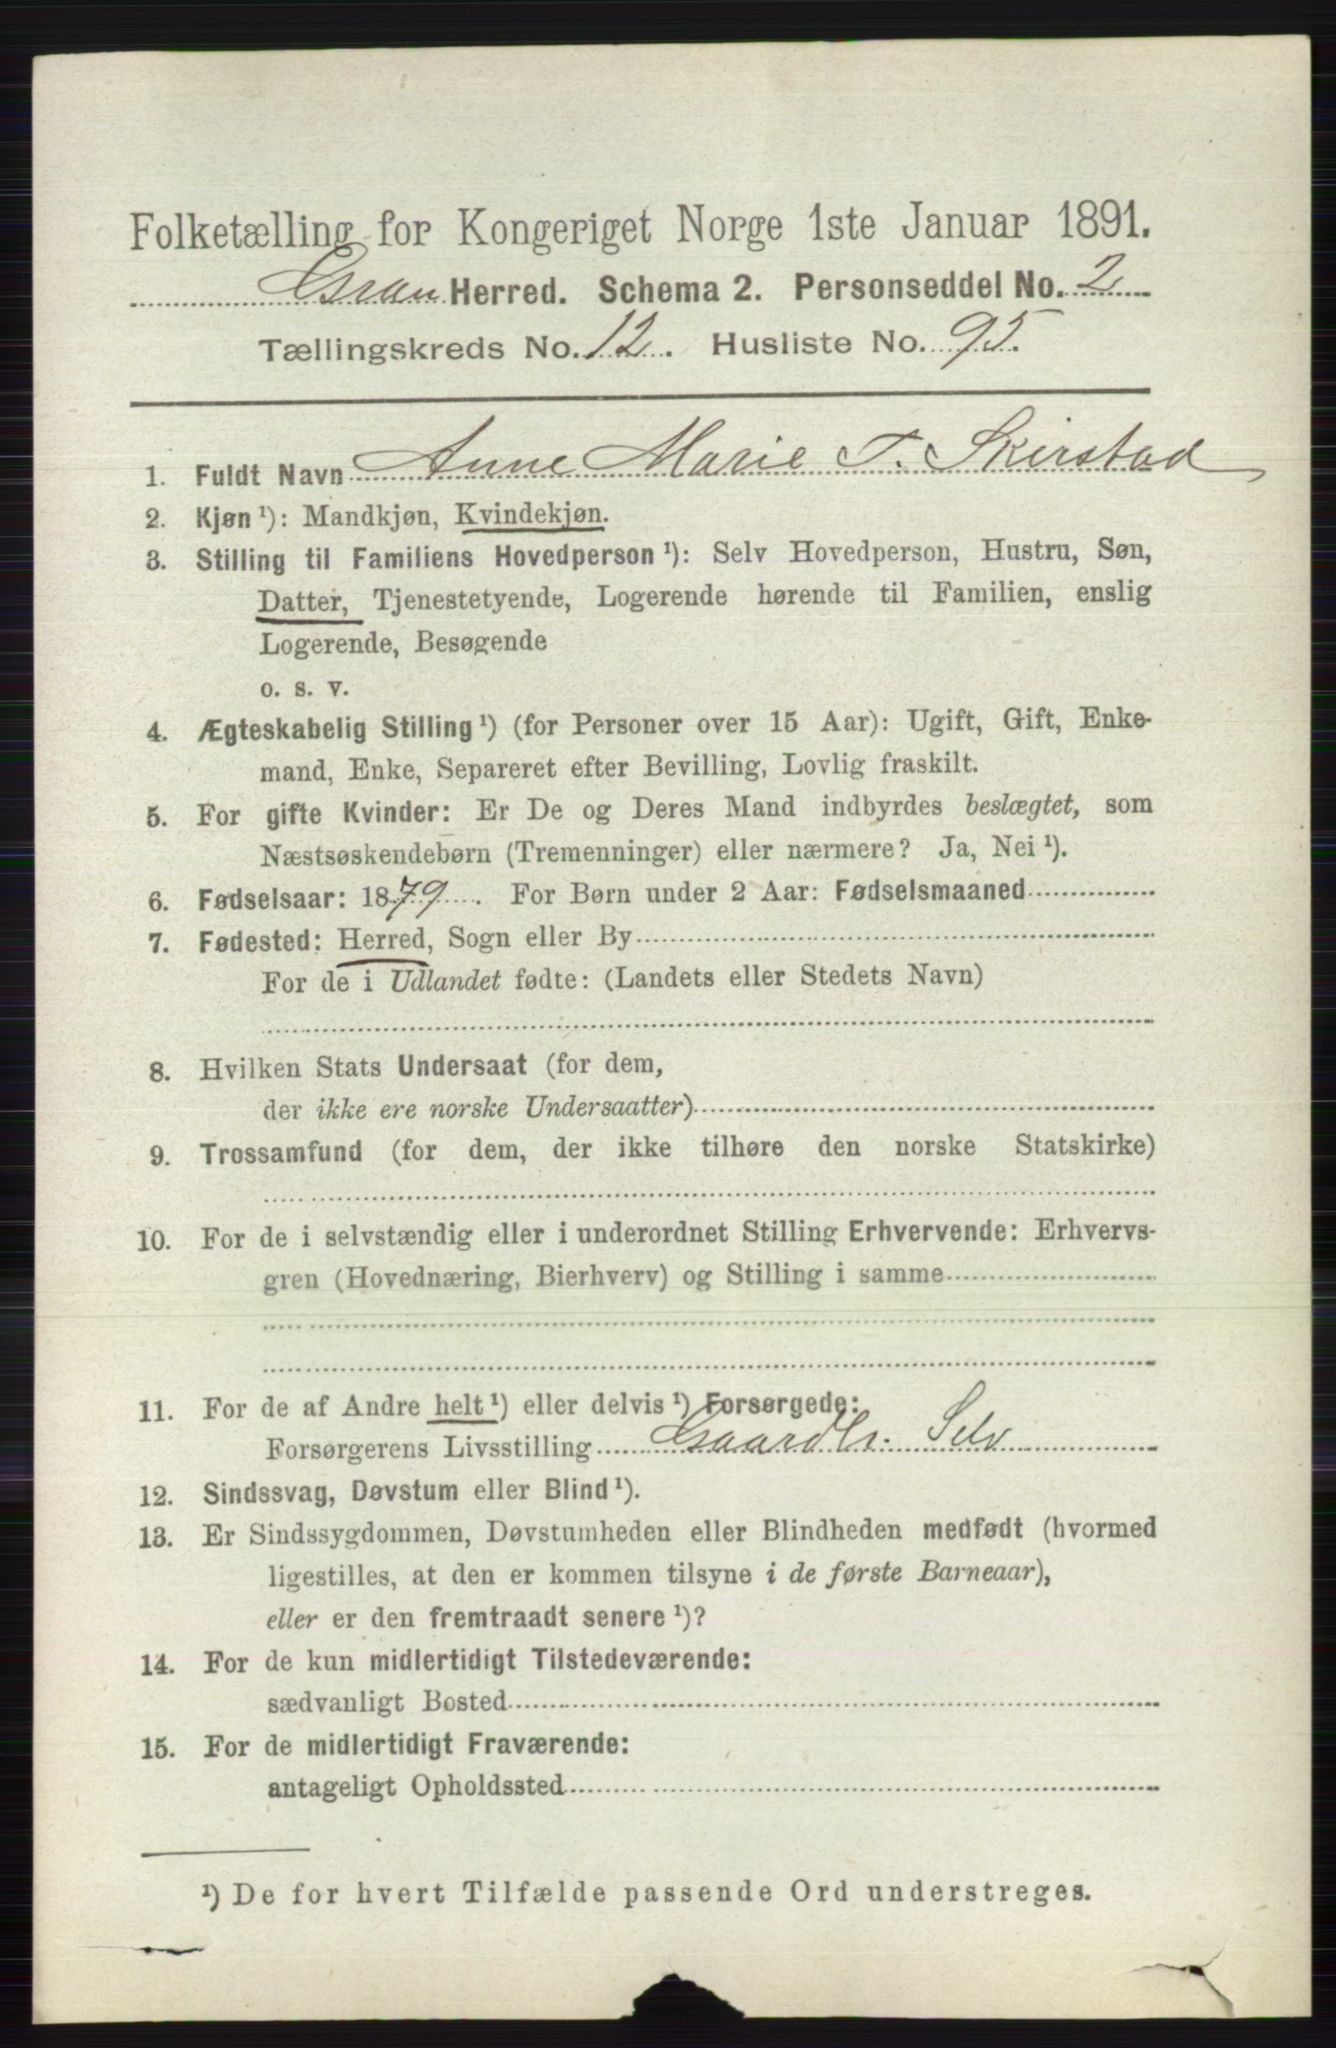 Folketælling for Kongeriget Norge 1ste Januar 1891.
Gran Herred. Schema 2. Personseddel No. 2
Tællingskreds No. 12. Husliste No. 95.
1. Fuldt Navn Anne Marie T. Skirstad
2. Kjøn ¹): Mandkjøn, Kvindekjøn.
3. Stilling til Familiens Hovedperson ¹): Selv Hovedperson, Hustru, Søn,
Datter, Tjenestetyende, Logerende hørende til Familien, enslig
Logerende, Besøgende
o. s. v.
4. Ægteskabelig Stilling ¹) (for Personer over 15 Aar): Ugift, Gift, Enke-
mand, Enke, Separeret efter Bevilling, Lovlig fraskilt.
5. For gifte Kvinder: Er De og Deres Mand indbyrdes beslægtet, som
Næstsøskendebørn (Tremenninger) eller nærmere? Ja, Nei ¹).
6. Fødselsaar: 1879. For Børn under 2 Aar: Fødselsmaaned
7. Fødested: Herred, Sogn eller By
For de i Udlandet fødte: (Landets eller Stedets Navn)
8. Hvilken Stats Undersaat (for dem,
der ikke ere norske Undersaatter)
9. Trossamfund (for dem, der ikke tilhøre den norske Statskirke)
10. For de i selvstændig eller i underordnet Stilling Erhvervende: Erhvervs-
gren (Hovednæring, Bierhverv) og Stilling i samme
11. For de af Andre helt ¹) eller delvis ¹) Forsørgede:
Forsørgerens Livsstilling Gaardbr. Selv
12. Sindssvag, Døvstum eller Blind ¹).
13. Er Sindssygdommen, Døvstumheden eller Blindheden medfødt (hvormed
ligestilles, at den er kommen tilsyne i de første Barneaar),
eller er den fremtraadt senere ¹)?
14. For de kun midlertidigt Tilstedeværende:
sædvanligt Bosted
15. For de midlertidigt Fraværende:
antageligt Opholdssted
¹) De for hvert Tilfælde passende Ord understreges.